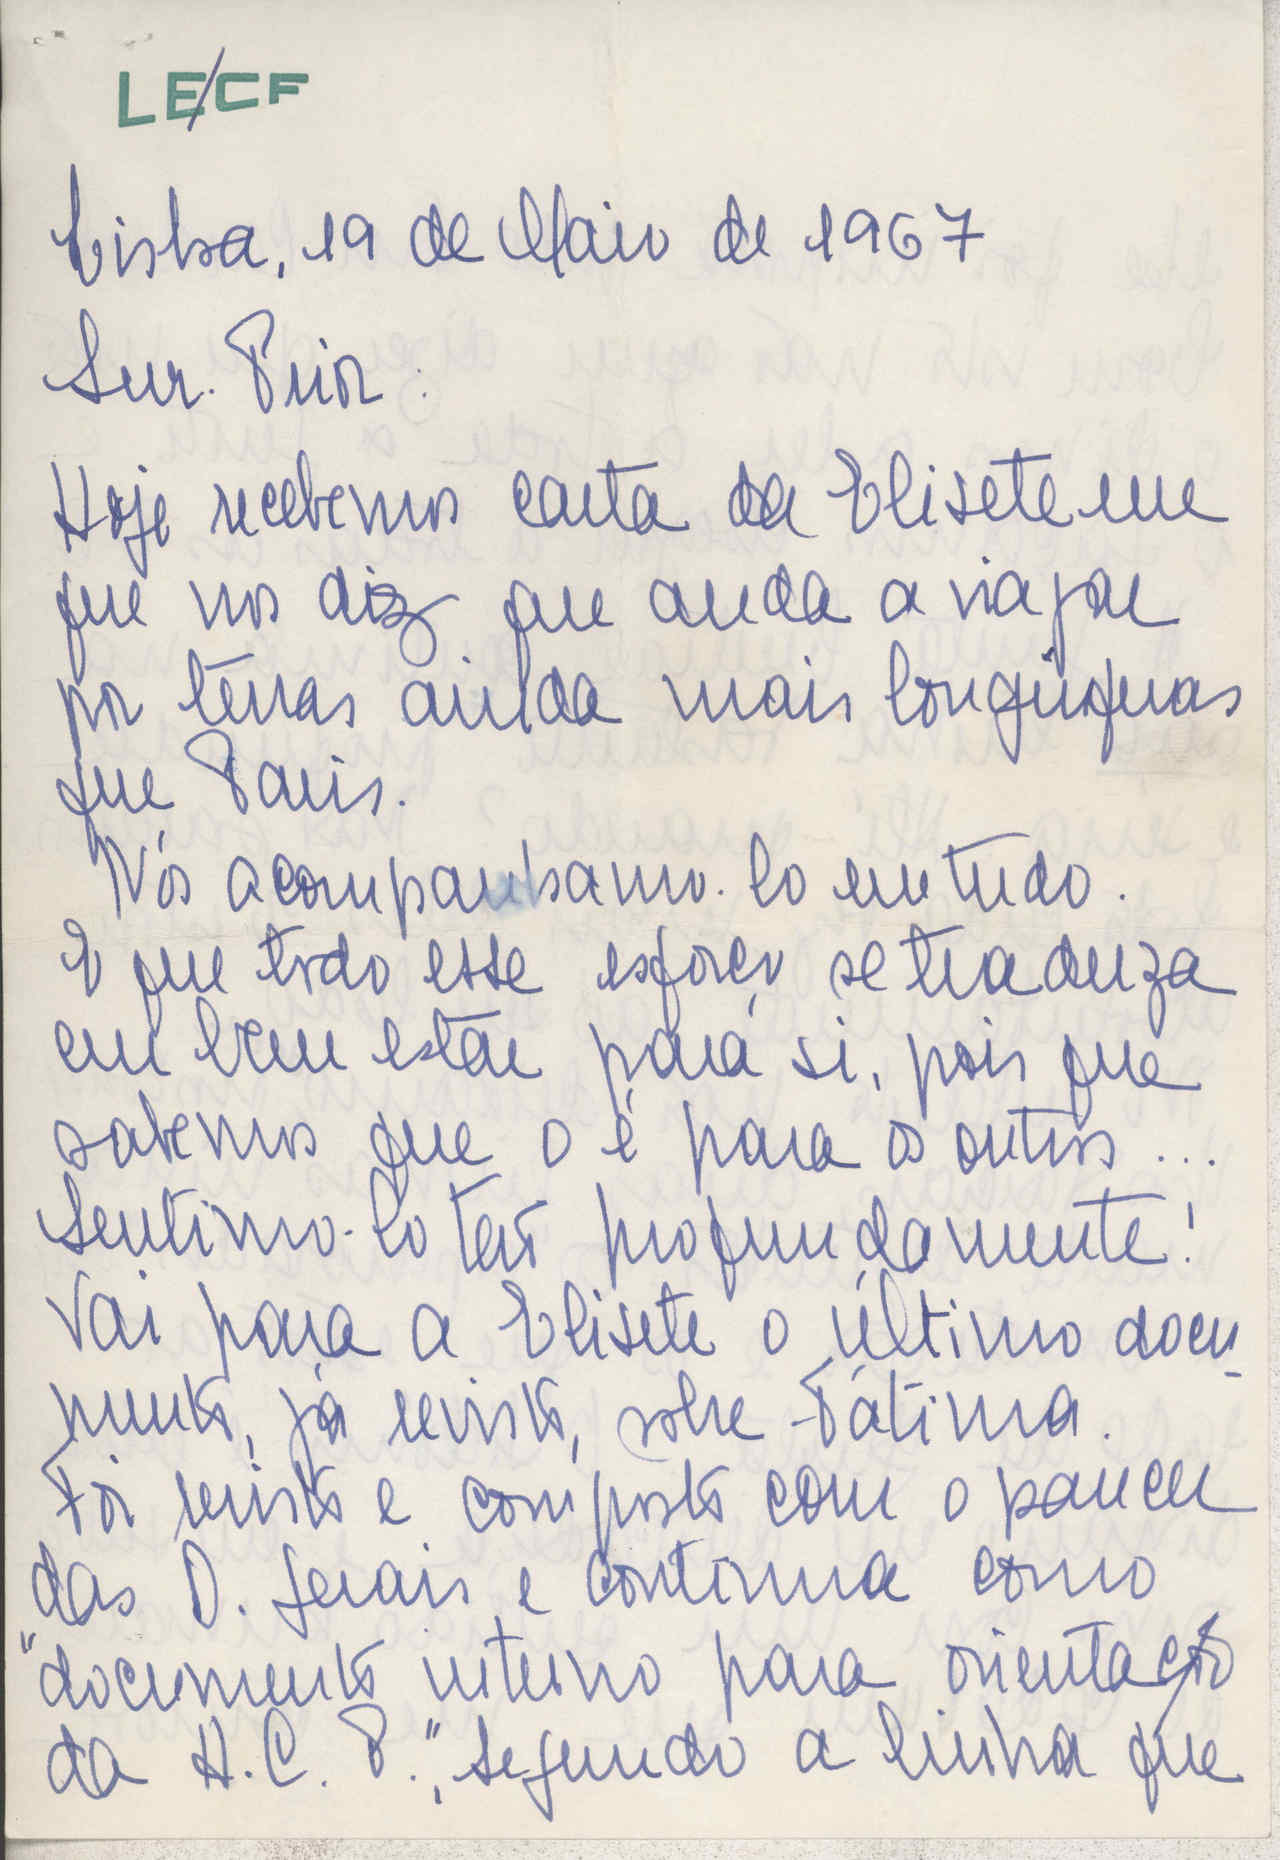 LECF
Lisboa, 19 de Maio de 1967
Snr. Prior:
Hoje recebemos carta da Elisete em
que nos diz que anda a viajar
por terras ainda mais longínquas
que Paris.
Nós acompanhamo-lo em tudo.
E que todo esse esforço se traduza
em bem estar para si, pois que
sabemos que o é para os outros...
Sentimo-lo tão profundamente!
Vai para a Elisete o último docu
mento, já revisto, sobre Fátima.
Foi revisto e composto com o parecer
das D. Gerais e continua como
"documento interno para orientação
da A.C.P.", segundo a linha que